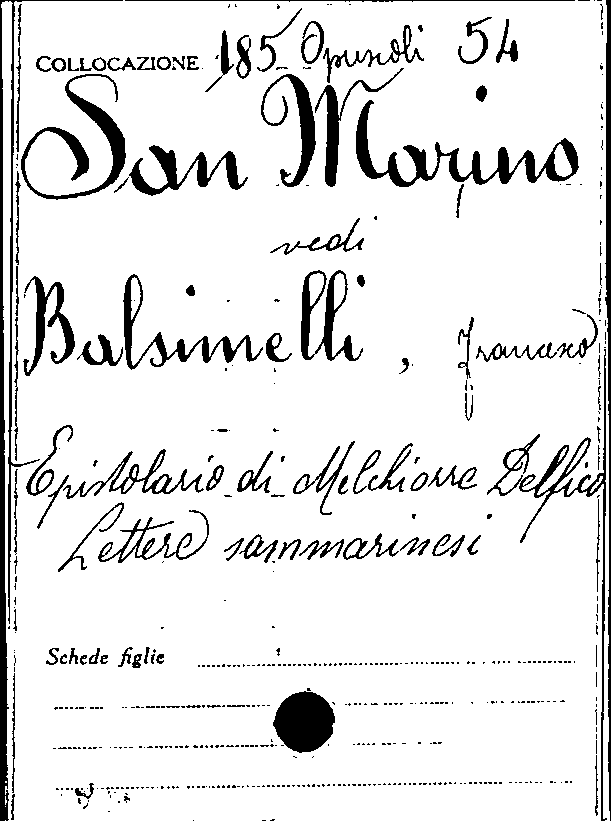 COLLOCAZIONE 185 Opuscoli 54
San Marino
vedi
Balsimelli, Francesco
Epistolario di Melchiorre Delfico
Lettere sammarinesi
Schede figlie